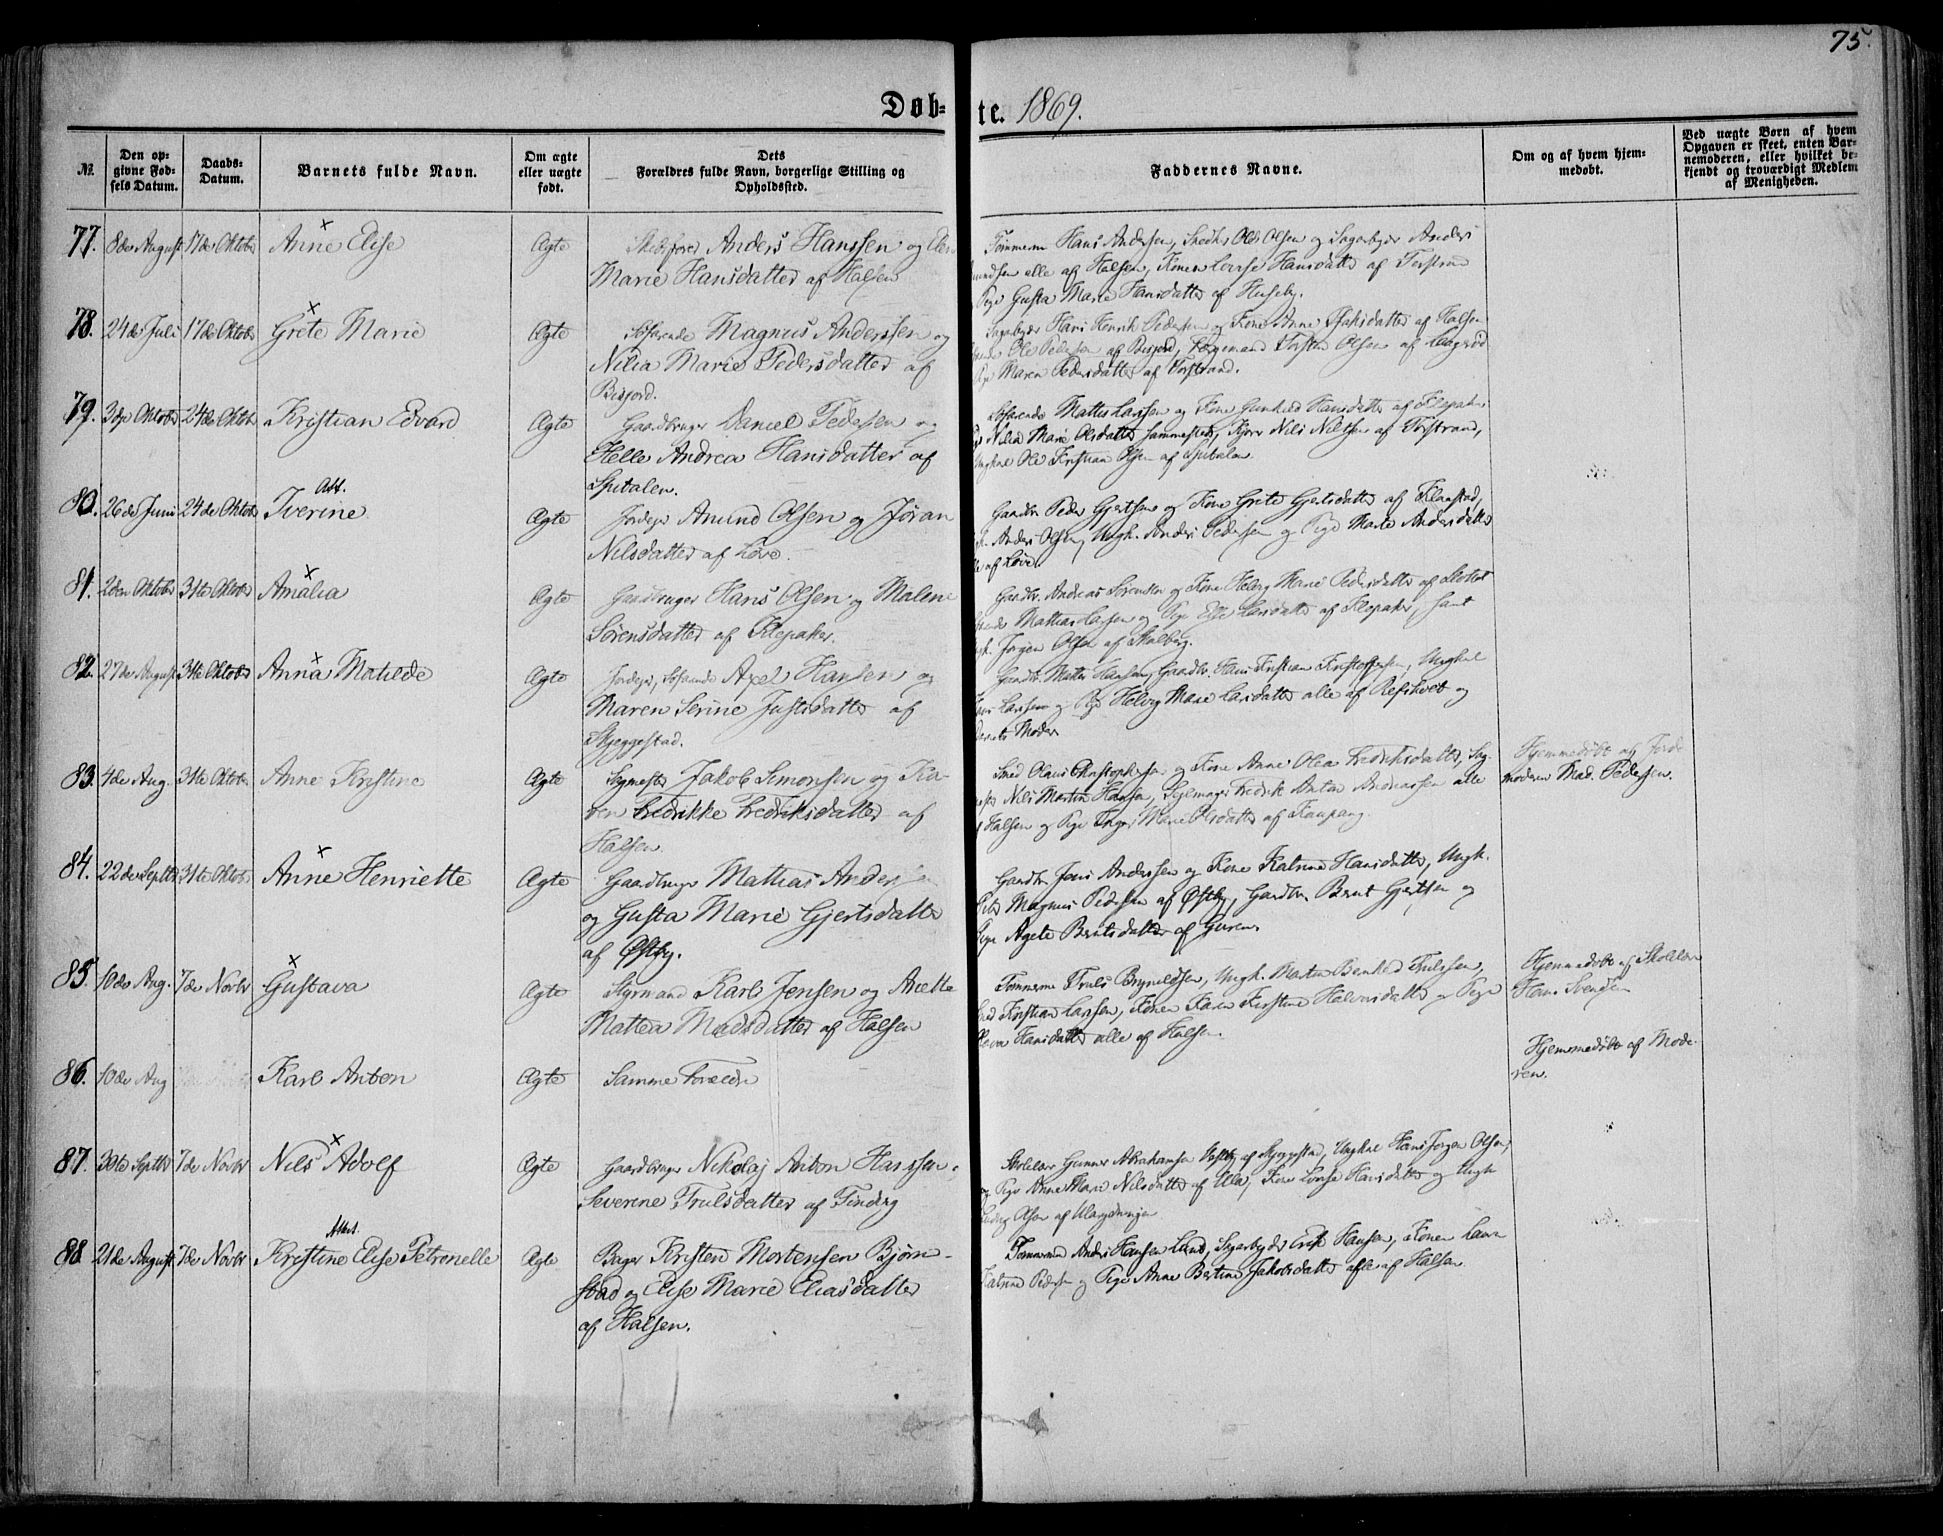 75.
Døb= te. 1869.
№. Den op= givne Fød= sels Datum. Daabs= Datum. Barnets fulde Navn. Om ægte eller uægte født. Dets Forældres fulde Navn, borgerlige Stilling og Opholdssted. Faddernes Navne. Om og af hvem hjem= medøbt. Ved uægte Børn af hvem Opgaven er skeet, enten Bar= nemoderen, eller hvilket be= kjendt og troværdigt Medlem af Menigheden.
77. 8de August 17de Oktober Anne Elise Ægte Anders Hanssen og
Marie Hansdatter af Halsen
Tømmerm Hans Andersen, Snedker Ole Olsen og Sagarbyder Anders
alle af Halsen, Konen Lovise Hansdatter af Torstrand
Pige Gusta Marie Hansdatter af Huseby.
78. 24de Juli 17de Oktober Grete Marie Ægte Søfarende Magnus Anderssen og
Nilia Marie Pedersdatter af
Bisjord.
Sagarbyder Hans Henrik Pedersen og Kone Anne Isaksdatter af Halsen
Ole Pedersen af Bisjord, Torsten Olsen af
Pige Maren Pedersdatter af Torstrand.
79. 3die Oktober 24de Oktob Kristian Edvard Ægte Gaardbruger Daniel Pedersen og
Helle Andrea Hansdatter af
Spitalen.
Søfarende Mattis Larssen og Kone Gunhild Hansdatter af Klepaker
Nilia Marie Olsdatter sammesteds, Nils Nilsen af Torstrand,
Ungkal Ole Kristian Olsen af Spitalen
80. 26de Juni 24de Oktob Att. Iverine Ægte Jordejer Amund Olsen og Jøran
Nilsdatter af Love.
Gaardbr Peder Gjertsen og Kone Grete Gjertsdatter af Klaastad,
Anders Olsen, Ungk. Anders Pedersen og Pige Marie Andersdatter
af Love
81. 2den Oktober 31te Oktober Amalia Ægte Gaardbruger Hans Olsen og Malene
Sørensdatter af Klepaker.
Gaardbr. Andreas Sørensen og Kone Helvig Marie Pedersdatter af
Mathias Larsen og Pige Else Larsdatter af Klepaker, samt
Jørgen Olsen af Skalberg.
82. 27de August 31te Oktober Anna Matilde Ægte Jordejer, Søfarende Axel Hansen og
Maren Serine Justsdatter af
Skjeggestad.
Gaardbr. Mattis Hansen, Gaardbr. Hans Kristian Kristoffersen, Ungkal
Larssen og Pige Helvig Marie Larsdatter alle af Refskovet og
Barnets Moder
83. 4de Aug. 31te Oktobr. Anne Kristine Ægte Jakob Simonsen og Ka-
ren Fredrikke Fredriksdatter af
Halsen
Smed Olaus Christophersen og Kone Anne Olea Fredriksdatter,
Nils Martin Hansen, Sejlmager Fredrik Anton Andreassen alle
af Halsen og Pige Inger Marie Olsdatter af Kaupang.
Hjemmedøbt af Jorde
moderen Mad. Pedersen.
84. 22de Septbr 31te Oktob Anne Henriette Ægte Gaardbruger Mathias Anders
og Gusta Marie Gjertsdatter
af Østby.
Gaardbr Jens Anderssen og Kone Katrine Hansdatter, Ungk.
Magnus Pedersen af Østby, Gaardbr. Berut Gjertsen og
Pige Agete Berntsdatter af Guren
85. 10de Aug. 7de Novbr Gustava Ægte Styrmand Karl Jensen og Anette
Mattea Madsdatter af Halsen
Tømmerm Truls Brynildsen, Ungk. Martin Trulssen,
Kristian Larssen, Konen Karen Kirstine Halvorsdatter og Pige
Hansdatter alle af Halsen.
Hjemmedøbt af Skolelærer
Hans Svendsen
86. 10de Aug Karl Anton Ægte Samme Forældre
Hjemmedøbt af Mode-
ren.
87. 30te Septbr 7de Novbr Nils Adolf Ægte Gaardbruger Nikolaj Anton Hanssen
Severine Trulsdatter af Tinding
Skolelærer Gunner Abrahamsen af Skjeggestad, Ungkal Hans Jørgen Olsen,
og Pige Anne Marie Nilsdatter af Ula, Kone Lovise Hansdatter og Ungk
Olsen af
88. 21de August 7de Novbr Attest. Kristine Elise Petronelle Ægte Bager Kristen Mortensen Bjørn-
stad og Elise Marie Eliasdatter
af Halsen.
Tømmerm Anders Hansen Lund, Sagarbyder Erik Hansen, Konen
Katrine Pedersen og Pige Anne Bertine Jakobsdatter alle af Halsen